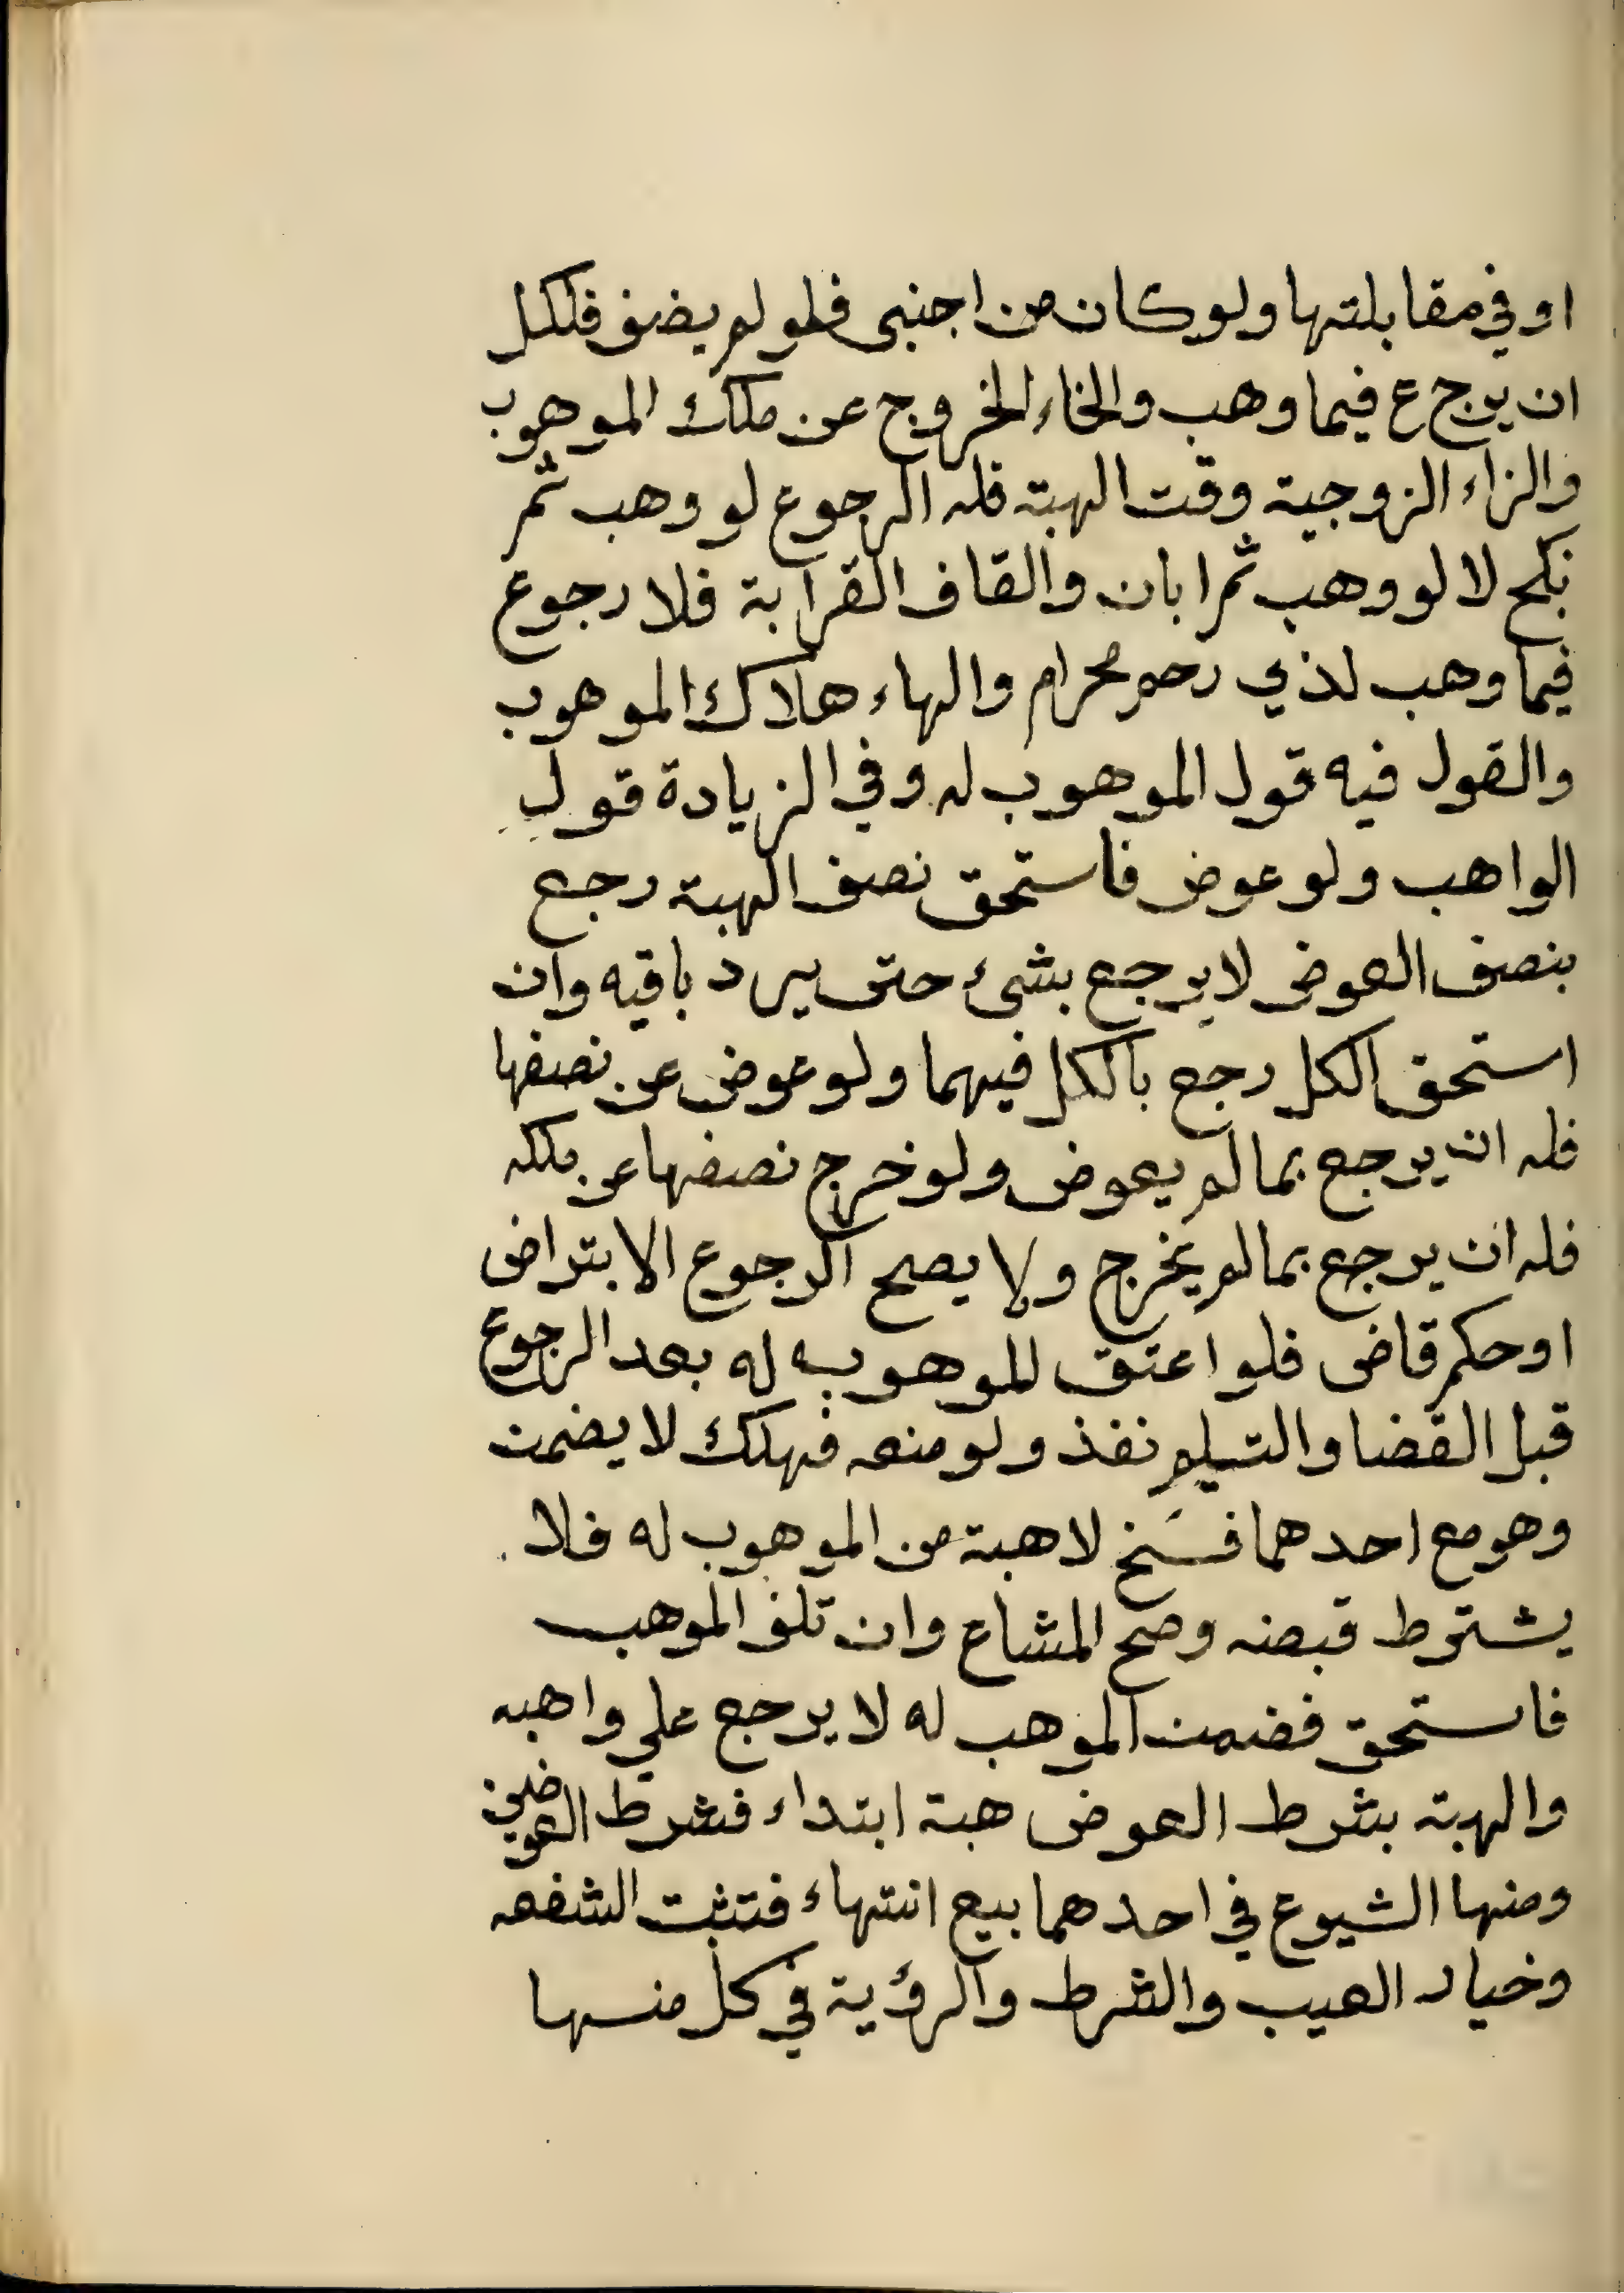 او في مقابلتها ولو كان من اجنبى فلو لم يضف فلكل
ان يرجع فيما وهب والخاء الخروج عن ملك الموهوب
والزاء الزوجية وقت الهبة فله الرجوع لو وهب ثم
نكح لا لو وهب ثم ابان والقاف القرابة فلا رجوع
فيما وهب لذي رحم محرام والهاء هلاك الموهوب
والقول فيه قول الموهوب له وفي الزيادة قول
الواهب ولو عوض فاستحق نصف الهبة رجع
بنصف العوض لا يرجع بشىء حتى يرد باقيه وان
استحق الكل رجع بالكل فيهما ولو عوض عن نصفها
فله ان يرجع بما لم يعوض ولو خرج نصفها عن ملكه
فله ان يرجع بما لم يخرج ولا يصح الرجوع الا بتراض
او حكم قاض فلو اعتق للموهوب له بعد الرجوع
قبل القضا والتسليم نفذ ولو منعه فهلك لا يضمن
وهو مع احدهما فسَخ لا هبة من الموهوب له فلا
يشترط قبضه وصح المشاع وان تلف الموهب
فاستحق فضمن الموهب له لا يرجع علي واهبه
والهبة بشرط العوض هبة ابتداء فشرط العوضين
ومنها الشيوع في احدهما بيع انتهاء فتثبت الشفعه
وخيار العيب والشرط والرؤية في كل منسها